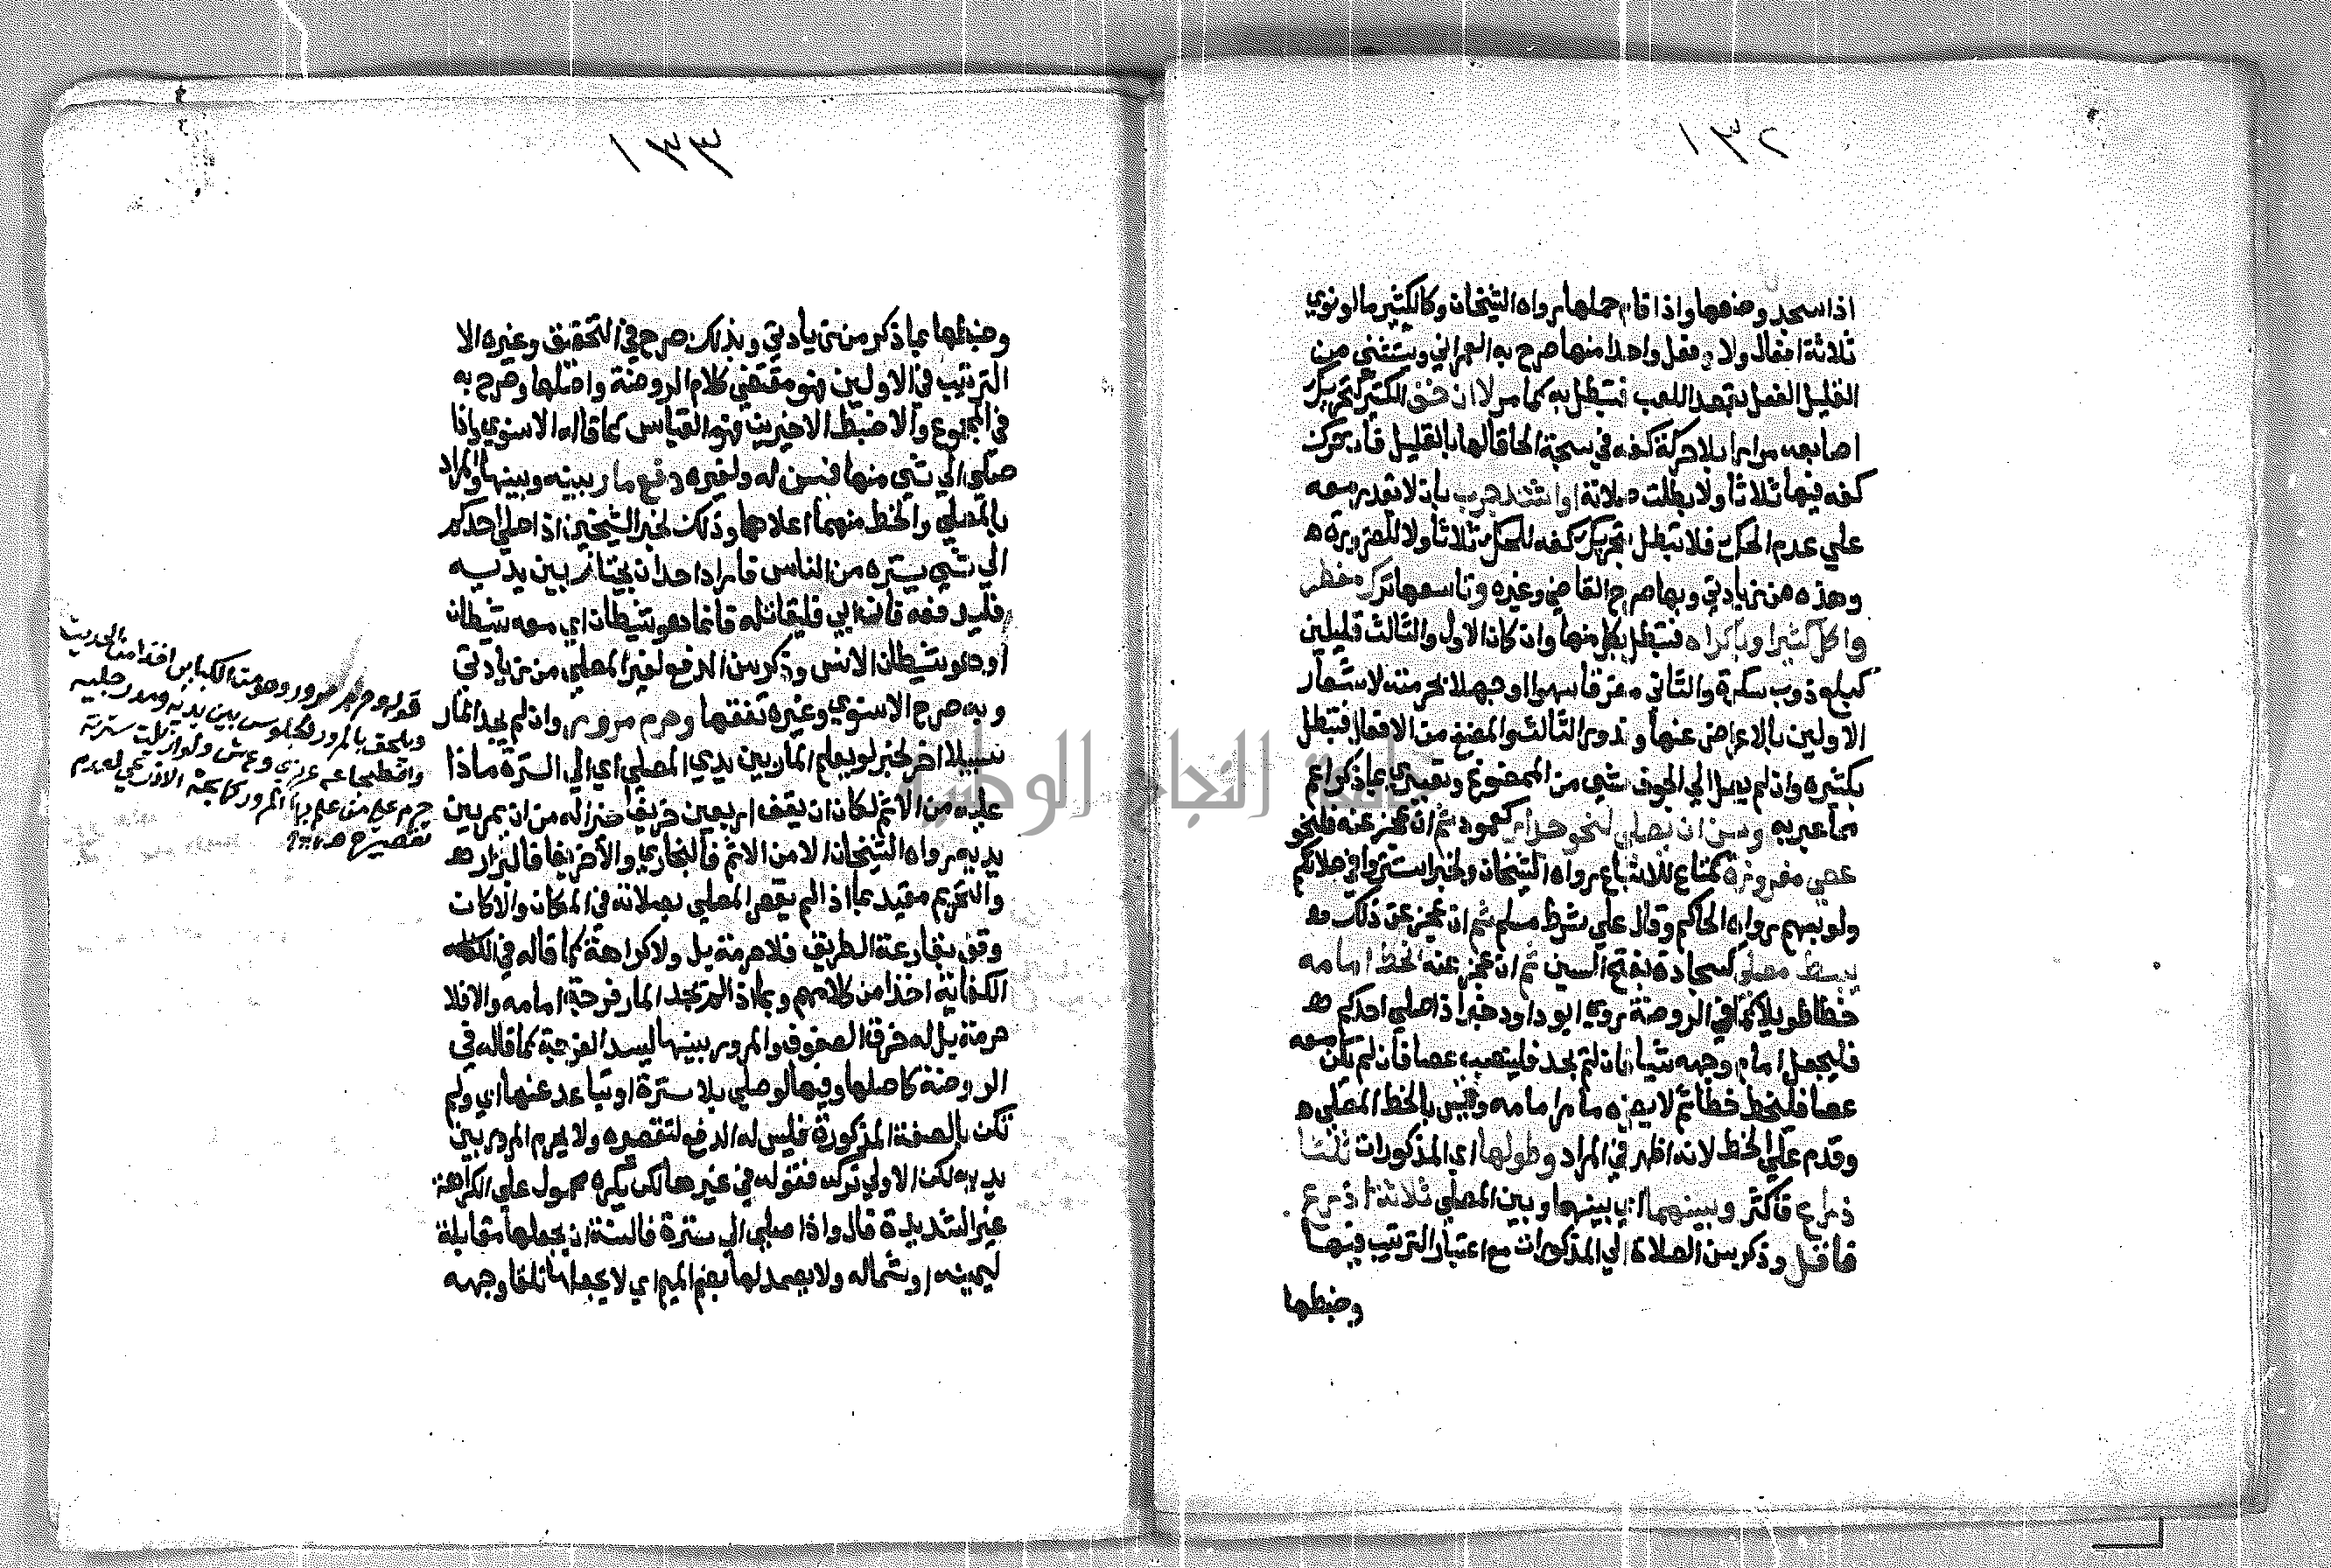 ١٣٢
اذا سجد وضعها واذا قام حملها رواه الشيخان وكالكثير ما لو نوي
ثلاثة افعال ولاء وفعل واحدا منها صرح به العمراني ويستثني من
القليل الفعل بقصد اللعب فتبطل به كما مر لا ان خف الكثير كتحريك
اصابعه مرارا بلا حركة كفه في سبحة الحاقا لها بالقليل فان حرك
كفه فيها ثلاثا ولاء بطلت صلاته او اشتد جرب بان لا يقدر معه
علي عدم الحك فلا تبطل بتحريك كفه للحك ثلاثا ولاء للضرورة ه
وهذه من زيادتي وبها صرح القاضي وغيره وتاسعها ترك مفطر
واكل كثير او باكراه فتبطل بكل منها وان كان الاول والثالث قليلين
كبلع ذوب سكرة والثاني مفرقا سهوا او جهلا لحرمته لاشعار
الاولين بالاعراض عنها وندور الثالث والمضغ من الافعال فتبطل
بكثيره وان لم يصل الي الجوف شي من الممضوغ وتعبيري بما ذكر اعم
مما عبر به وسن ان يصلي لنحو جدار كعمود ثم ان عجز عنه فلنحو
عصي مغروزة كمتاع للاتباع رواه الشيخان ولخبر استتروا في صلاتكم
ولو بسهم رواه الحاكم وقال علي شرط مسلم ثم ان عجز عن ذلك ه
يبسط مصلي كسجادة بفتح السين ثم ان عجز عنه الخط امامه
خطا طويلا كما في الروضة روي ابو داود خبر اذا صلي احدكم ه
فليجعل امام وجهه شيا فان لم يجد فلينصب عصا فان لم تكن معه
عصا فليخط خطا ثم لا يضره ما مر امامه وقيس بالخط المصلي ه
وقدم علي الخط لانه اظهر في المراد وطولها اي المذكورات ثلثا
ذراع فاكثر وبينهما اي بينها وبين المصلي ثلاثة اذرع
فاقل وذكر سن الصلاة الي المذكورات مع اعتبار الترتيب فيها
وضبطها
١٣٣
وضبطها بما ذكر من زيادتي وبذلك صرح في التحقيق وغيره الا
الترتيب في الاولين فهو مقتضي كلام الروضة واصلها وصرح به
في المجموع والا ضبط الاخيرين فهو القياس كما قاله الاسنوي واذا
صلي الي شي منها فسن له ولغيره دفع مار بينه وبينها والمراد
بالمصلي والخط منهما اعلاهما وذلك لخبر الشيخين اذا صلي احدكم
الي شي يستره من الناس فاراد احد ان يجتاز بين يديه
فليدفعه فان ابي فليقاتله فانما هو شيطان اي معه شيطان
او هو شيطان الانس وذكر سن الدفع لغير المصلي من زيادتي
وبه صرح الاسنوي وغيره تفقها وحرم مرور وان لم يجد المار
سبيلا اخر لخبر لو يعلم المار بين يدي المصلي اي الي السترة ماذا
عليه من الاثم لكان ان يقف اربعين خريفا خيرا له من ان يمر بين
يديه رواه الشيخان الا من الاثم فالبخاري والا خريفا فالبزار ه
والتحريم مقيد بما اذا لم يقصر المصلي بصلاته في المكان والا كان
وقف بقارعة الطريق فلا حرمة بل ولا كراهة كما قاله في
الكفاية اخذا من كلامهم وبما اذا لم تجد المار فرجة امامه والا فلا
حرمة بل له خرق الصفوف والمرور بينها ليسد الفرجة كما قاله في
الروضة كاصلها وفيها لو صلي بلا سترة او تباعد عنها اي ولم
تكن بالصفة المذكورة فليس له الدفع لتقصيره ولا يحرم المرور بين
يديه لكن الاولي تركه فقوله في غيرها لكن يكره محمول علي الكراهة
غير الشديدة قال واذا صلي الي سترة فالسنة ان يجعلها مقابلة
ليمينه او شماله ولا يصمد لها بضم الميم اي لا يجعلها تلقا وجهه
قوله وحرم مرور وهو من الكبائر اخذا من الحديث
ويلحق بالمرور الجلوس بين يديه ومد رجليه
واضطجاعه عزيزي وع ش ولو ازيلت سترته
حرم علي من علم بها المرور كما بحثه الاذرعي لعدم
تقصيره